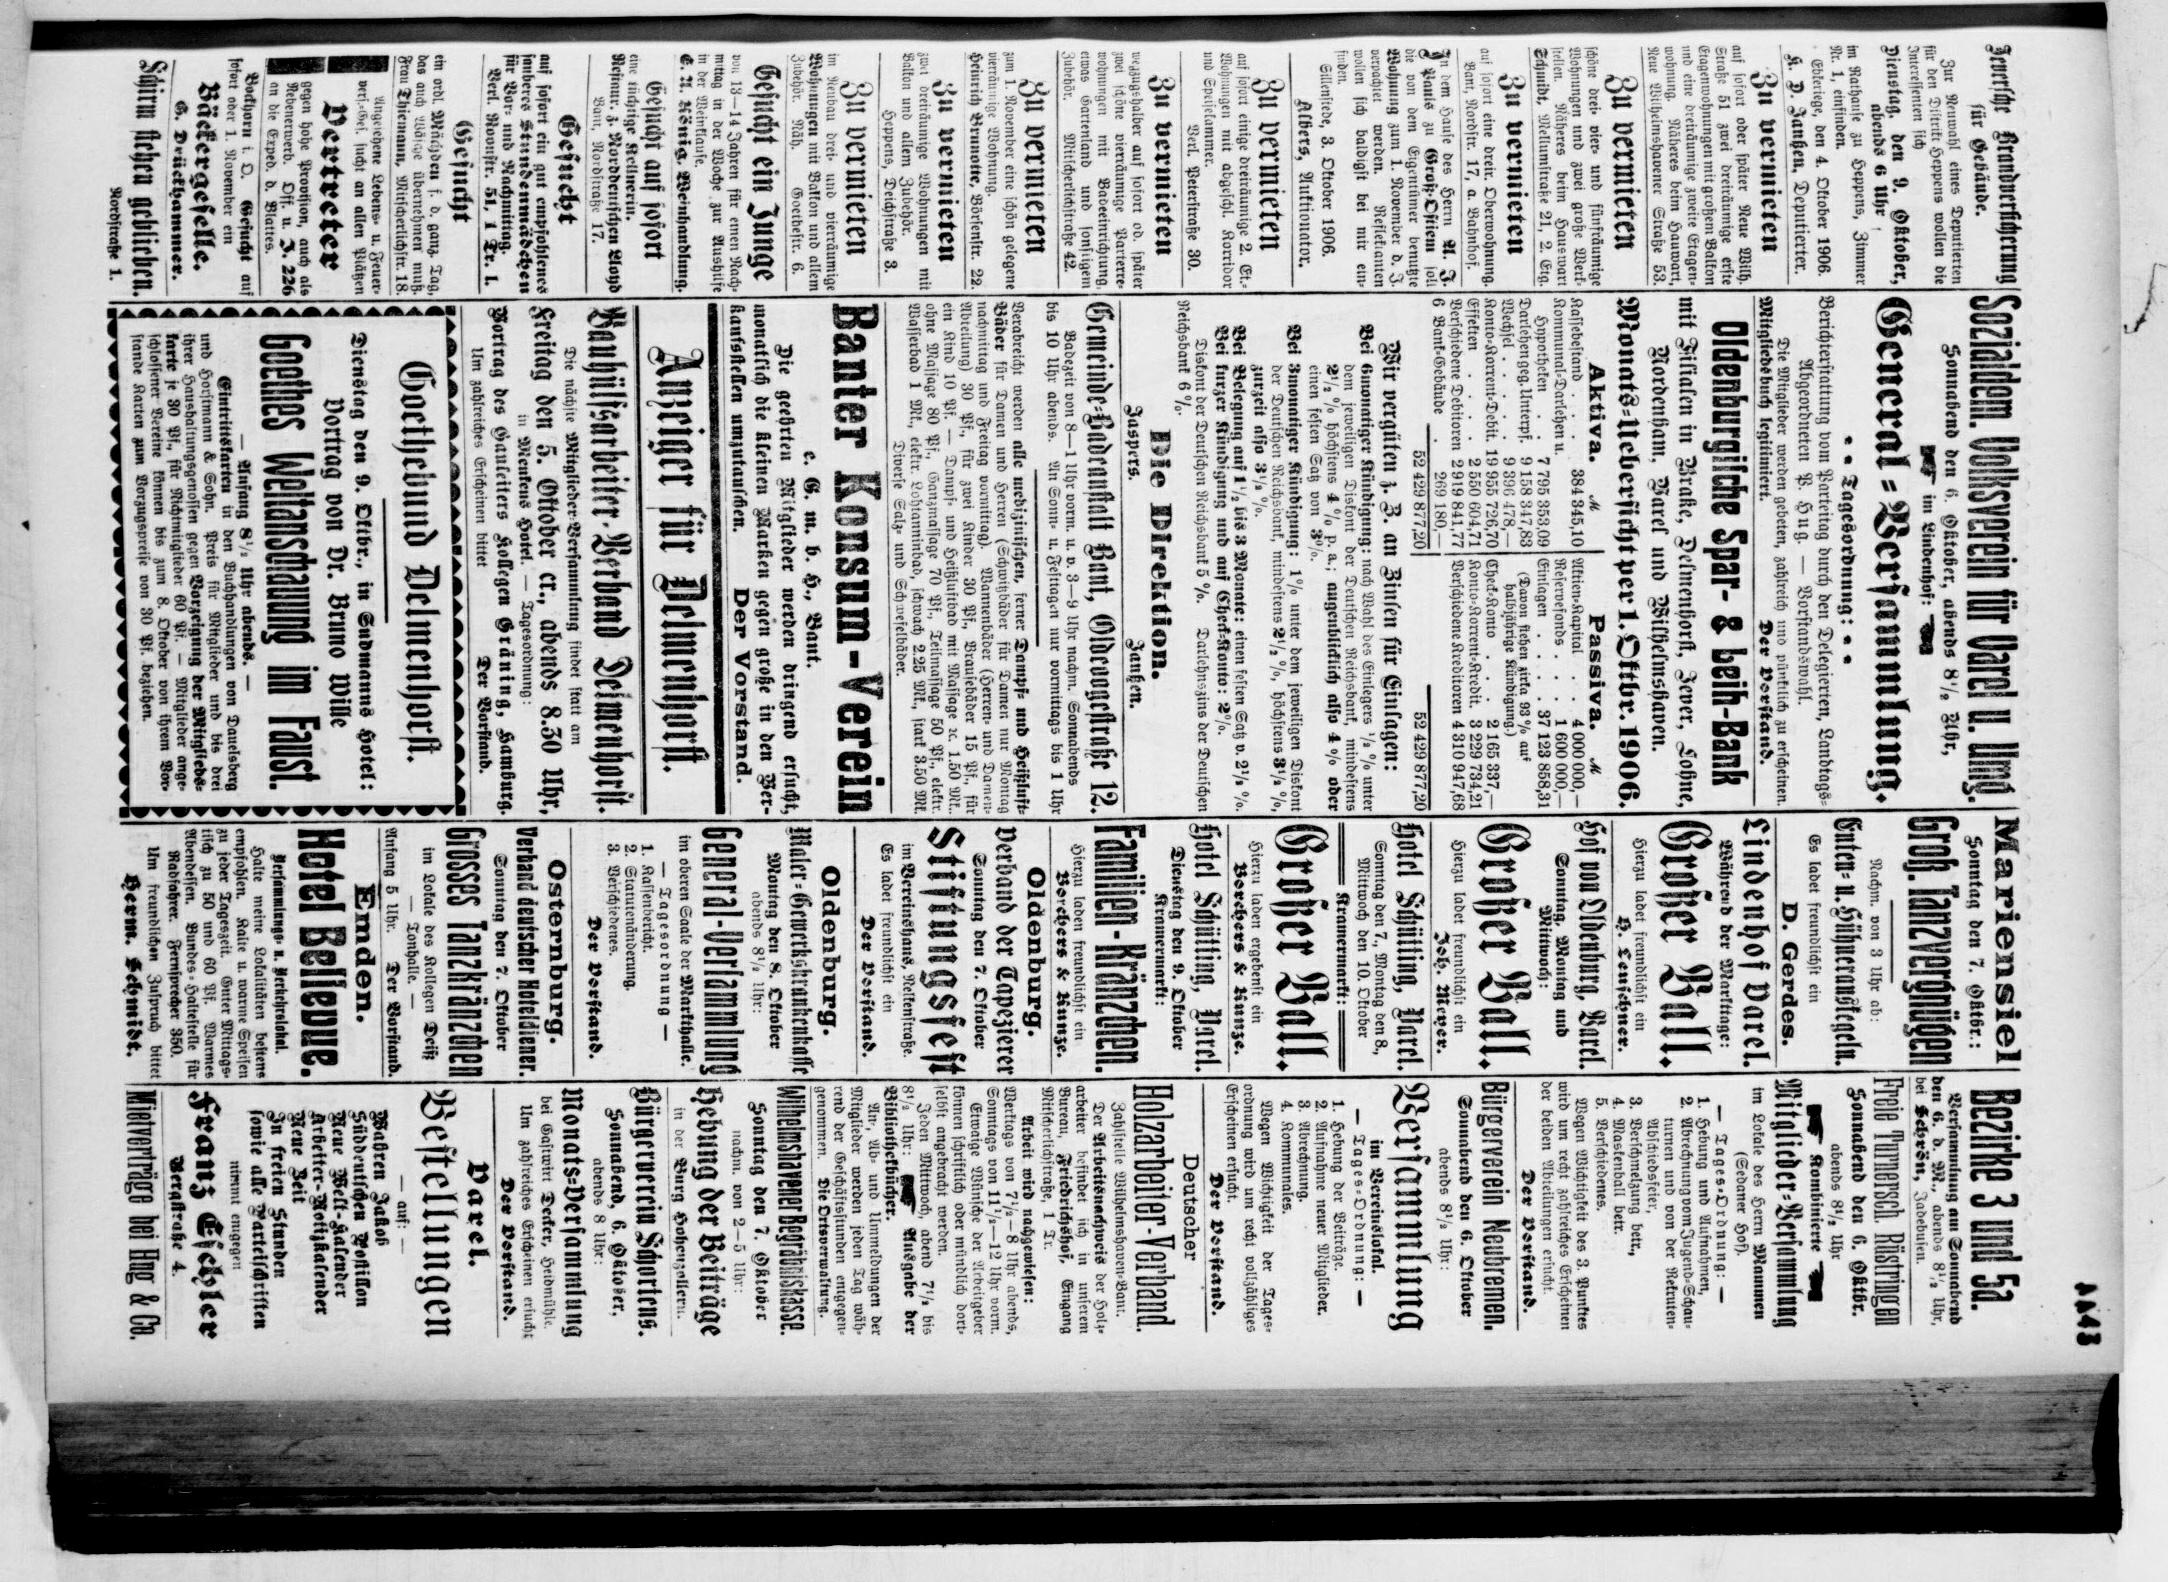 Jeversche Brandversicherung
für Gebäude.
Zur Neuwahl eines Deputierten
für den Distrikt Heppens wollen die
Interessenten sich
Dienstag, den 9. Oktober,
abends 6 Uhr
im Rathause zu Heppens, Zimmer
Nr. 1, einfinden.
Ebkeriege, den 4. Oktober 1906.
H. D. Janßen, Deputierter.
Zu vermieten
auf sofort oder später Neue Wilh.
Straße 51 zwei dreiräumige erste
Etagenwohnungen mit großem Balkon
und eine dreiräumige zweite Etagen-
wohnung. Näheres beim Hauswart,
Neue Wilhelmshavener Straße 53.
Zu vermieten
schöne drei- vier- und fünfräumige
Wohnungen und zwei große Werk-
stellen. Näheres beim Hauswart
Schmidt, Mellumstraße 21, 2. Etg.
Zu vermieten
auf sofort eine dreir. Oberwohnung.
Bant, Nordstr. 17, a. Bahnhof.
In dem Hause des Herrn A. J.
J. Pauls zu Groß-Ostiem soll
die von dem Eigentümer benutzte
Wohnung zum 1. November d. J.
verpachtet werden. Reflektanten
wollen sich baldigst bei mir ein-
finden.
Sillenstede, 3. Oktober 1906.
Albers, Auktionator.
Zu vermieten
auf sofort einige dreiräumige 2. Et.-
Wohnungen mit abgeschl. Korridor
und Speisekammer.
Verl. Peterstraße 30.
Zu vermieten
wegzugshalber auf sofort od. später
zwei schöne vierräumige Parterre-
wohnungen mit Badeeinrichtung,
etwas Gartenland und sonstigem
Zubehör. Mitscherlichstraße 42.
Zu vermieten
zum 1. November eine schön gelegene
vierräumige Wohnung.
Heinrich Brunotte, Börsenstr. 22.
Zu vermieten
zwei dreiräumige Wohnungen mit
Balkon und allem Zubehör.
Heppens, Deichstraße 3.
Zu vermieten
im Neubau drei- und vierräumige
Wohnungen mit Balkon und allem
Zubehör. Näh. Goethestr. 6.
Gesucht ein Junge
von 13—14 Jahren für einen Nach-
mittag in der Woche zur Aushilfe
in der Weinklause.
C. A. König, Weinhandlung.
Gesucht auf sofort
eine tüchtige Kellnerin.
Restaur. z. Norddeutschen Lloyd
Bant, Nordstraße 17.
Gesucht
auf sofort ein gut empfohlenes
sauberes Stundenmädchen
für Vor- und Nachmittag.
Verl. Roonstr. 51, 1 Tr. l.
Gesucht
ein ordl. Mädchen f. d. ganz. Tag,
das auch Wäsche übernehmen muß.
Frau Thiemann, Mitscherlichstr. 18.
Angesehene Lebens- u. Feuer-
vers.-Ges. sucht an allen Plätzen
Vertreter
gegen hohe Provision, auch als
Nebenerwerb. Off. u. J. 226
an die Exped. d. Blattes.
Bockhorn i. O. Gesucht auf
sofort oder 1. November ein
Bäckergeselle.
G. Drückhammer.
Schirm stehen geblieben.
Nordstraße 1.
Sozialdem. Volksverein für Varel u. Umg.
Sonnabend den 6. Oktober, abends 8½ Uhr,
im Lindenhof:
General-Versammlung.
Tagesordnung:
Berichterstattung vom Parteitag durch den Delegierten, Landtags-
Abgeordneten P. Hug. — Vorstandswahl.
Die Mitglieder werden gebeten, zahlreich und pünktlich zu erscheinen.
Mitgliedsbuch legitimiert. Der Vorstand.
Oldenburgische Spar- & Leih-Bank
mit Filialen in Brake, Delmenhorst, Jever, Lohne,
Nordenham, Varel und Wilhelmshaven.
Monats-Uebersicht per 1. Oktbr. 1906.
Aktiva. M
Kassebestand . . . 384 345,10
Kommunal-Darlehen u.
Hypotheken . . . 7 795 353,09
Darlehen geg. Unterpf. 9 158 347,83
Wechsel . . . 9 396 478,—
Konto-Korrent-Debit. 19 955 726,70
Effekten . . . 2 550 604,71
Verschiedene Debitoren 2 919 841,77
6 Bank-Gebäude . 269 180,—
52 429 877,20
Passiva. M
Aktien-Kapital . . 4 000 000,—
Reservefonds . . . 1 600 000,—
Einlagen . . . 37 123 858,31
(Davon stehen zirka 93 % auf
halbjährige Kündigung.)
Check-Konto . . . 2 165 337,—
Konto-Korrent-Kredit. 3 229 734,21
Verschiedene Kreditoren 4 310 947,68
52 429 877,20
Wir vergüten z. Z. an Zinsen für Einlagen:
Bei 6monatiger Kündigung: nach Wahl des Einlegers ½ % unter
dem jeweiligen Diskont der Deutschen Reichsbank, mindestens
2½ % höchstens 4 % p. a.; augenblicklich also 4 % oder
einen festen Satz von 3%.
Bei 3monatiger Kündigung: 1% unter dem jeweiligen Diskont
der Deutschen Reichsbank, mindestens 2½ %, höchstens 3½ %,
zurzeit also 3½ %.
Bei Belegung auf 1½ bis 3 Monate: einen festen Satz v. 2½ %.
Bei kurzer Kündigung und auf Check-Konto: 2%.
Diskont der Deutschen Reichsbank 5 %. Darlehnszins der Deutschen
Reichsbank 6 %.
Die Direktion.
Jaspers. Janßen.
Gemeinde-Badeanstalt Bant, Oldeoogestraße 12.
Badezeit von 8—1 Uhr vorm. u. v. 3—9 Uhr nachm. Sonnabends
bis 10 Uhr abends. An Sonn- u. Festtagen nur vormittags bis 1 Uhr
Verabreicht werden alle medizinischen, ferner Dampf- und Heißluft-
Bäder für Damen und Herren (Schwitzbäder für Damen nur Montag
nachmittag und Freitag vormittag). Wannenbäder (Herren- und Damen-
Abteilung) 30 Pf., für zwei Kinder 30 Pf., Brausebäder 15 Pf., für
ein Kind 10 Pf. — Dampf- und Heißluftbad mit Massage ꝛc. 1.50 Mk.
ohne Massage 80 Pf., Ganzmassage 70 Pf., Teilmassage 50 Pf., elektr.
Wasserbad 1 Mk., elektr. Lohtanninbad, schwach 2.25 Mk., stark 3.50 Mk.
Diverse Salz- und Schwefelbäder.
Banter Konsum-Verein
e. G. m. b. H., Bant.
Die geehrten Mitglieder werden dringend ersucht,
monatlich die kleinen Marken gegen große in den Ver-
kaufsstellen umzutauschen. Der Vorstand.
Anzeiger für Delmenhorst.
Bauhülfsarbeiter-Verband Delmenhorst.
Die nächste Mitglieder-Versammlung findet statt am
Freitag den 5. Oktober cr., abends 8.30 Uhr,
in Menkens Hotel. — Tagesordnung:
Vortrag des Gauleiters Kollegen Gräning, Hamburg.
Um zahlreiches Erscheinen bittet Der Vorstand.
Goethebund Delmenhorst.
Dienstag den 9. Oktbr., in Sudmanns Hotel:
Vortrag von Dr. Bruno Wille
Goethes Weltanschauung im Faust.
— Anfang 8½ Uhr abends. —
Eintrittskarten in den Buchhandlungen von Dauelsberg
und Horstmann & Sohn. Preis für Mitglieder und bis drei
ihrer Haushaltungsgenossen gegen Vorzeigung der Mitglieds-
karte je 30 Pf., für Nichtmitglieder 60 Pf. — Mitglieder ange-
schlossener Vereine können bis zum 8. Oktober von ihrem Vor-
stande Karten zum Vorzugspreise von 30 Pf. beziehen.
Mariensiel
Sonntag den 7. Oktbr.:
Groß. Tanzvergnügen
Nachm. von 3 Uhr ab:
Enten- u. Hühnerauskegeln.
Es ladet freundlichst ein
D. Gerdes.
Lindenhof Varel.
Während der Markttage:
Großer Ball.
Hierzu ladet freundlichst ein
H. Leuschner.
Hof von Oldenburg, Varel.
Sonntag, Montag und
Mittwoch:
Großer Ball.
Hierzu ladet freundlichst ein
Joh. Meyer.
Hotel Schütting, Varel.
Sonntag den 7., Montag den 8.,
Mittwoch den 10. Oktober
Kramermarkt:
Großer Ball.
Hierzu laden ergebenst ein
Borchers & Kunze.
Hotel Schütting, Varel.
Dienstag den 9. Oktober
Kramermarkt:
Familien-Kränzchen.
Hierzu laden freundlichst ein
Borchers & Kunze.
Oldenburg.
Verband der Tapezierer
Sonntag den 7. Oktober
Stiftungsfest
im Vereinshaus, Nelkenstraße.
Es ladet freundlichst ein
Der Vorstand.
Oldenburg.
Maler-Gewerkskrankenkasse
Montag den 8. Oktober
abends 8½ Uhr:
General-Versammlung
im oberen Saale der Markthalle.
— Tagesordnung —
1. Kassenbericht.
2. Statutenänderung.
3. Verschiedenes.
Der Vorstand.
Osternburg.
Verband deutscher Hoteldiener.
Sonntag den 7. Oktober
Grosses Tanzkränzchen
im Lokale des Kollegen Deitz
— Tonhalle. —
Anfang 5 Uhr. Der Vorstand.
Emden.
Hotel Bellevue.
Versammlungs- u. Verkehrslokal.
Halte meine Lokalitäten bestens
empfohlen. Kalte u. warme Speisen
zu jeder Tageszeit. Guter Mittags-
tisch zu 50 und 60 Pf. Warmes
Abendessen. Bundes-Haltestelle für
Radfahrer. Fernsprecher 350.
Um freundlichen Zuspruch bittet
Herm. Schmidt.
Bezirke 3 und 5a.
Versammlung am Sonnabend
den 6. d. M., abends 8½ Uhr,
bei Schrön, Jadebusen.
Freie Turnersch. Rüstringen
Sonnabend den 6. Oktbr.
abends 8½ Uhr
Kombinierte
Mitglieder-Versammlung
im Lokale des Herrn Mammen
(Sedaner Hof).
— Tages-Ordnung: —
1. Hebung und Aufnahmen,
2. Abrechnung vom Jugend-Schau-
turnen und von der Rekruten-
Abschiedsfeier,
3. Verschmelzung betr.,
4. Maskenball betr.
5. Verschiedenes.
Wegen Wichtigkeit des 3. Punktes
wird um recht zahlreiches Erscheinen
der beiden Abteilungen ersucht.
Der Vorstand.
Bürgerverein Neubremen.
Sonnabend den 6. Oktober
abends 8½ Uhr:
Versammlung
im Vereinslokal.
— Tages-Ordnung: —
1. Hebung der Beiträge.
2. Aufnahme neuer Mitglieder.
3. Abrechnung.
4. Kommunales.
Wegen Wichtigkeit der Tages-
ordnung wird um recht vollzähliges
Erscheinen ersucht.
Der Vorstand.
Deutscher
Holzarbeiter-Verband.
Zahlstelle Wilhelmshaven-Bant.
Der Arbeitsnachweis der Holz-
arbeiter befindet sich in unserem
Bureau, Friedrichshof, Eingang
Mitscherlichstraße, 1 Tr.
Arbeit wird nachgewiesen:
Werktags von 7½—8 Uhr abends,
Sonntags von 11½—12 Uhr vorm.
Etwaige Wünsche der Arbeitgeber
können schriftlich oder mündlich dort-
selbst angebracht werden.
Jeden Mittwoch, abend 7½ bis
8½ Uhr: Ausgabe der
Bibliothekbücher.
An-, Ab- und Ummeldungen der
Mitglieder werden jeden Tag wäh-
rend der Geschäftsstunden entgegen-
genommen. Die Ortsverwaltung.
Wilhelmshavener Begräbniskasse.
Sonntag den 7. Oktober
nachm. von 2—5 Uhr:
Hebung der Beiträge
in der Burg Hohenzollern.
Bürgerverein Schortens.
Sonnabend, 6. Oktober,
abends 8 Uhr:
Monats-Versammlung
bei Gastwirt Decker, Heidmühle.
Um zahlreiches Erscheinen ersucht
Der Vorstand.
Varel.
Bestellungen
— auf: —
Wahren Jakob
Süddeutschen Postillon
Neue Welt-Kalender
Arbeiter-Notizkalender
Neue Zeit
In freien Stunden
sowie alle Parteischriften
nimmt entgegen
Franz Eschler
Bergstraße 4.
Mietverträge bei Hug & Co.